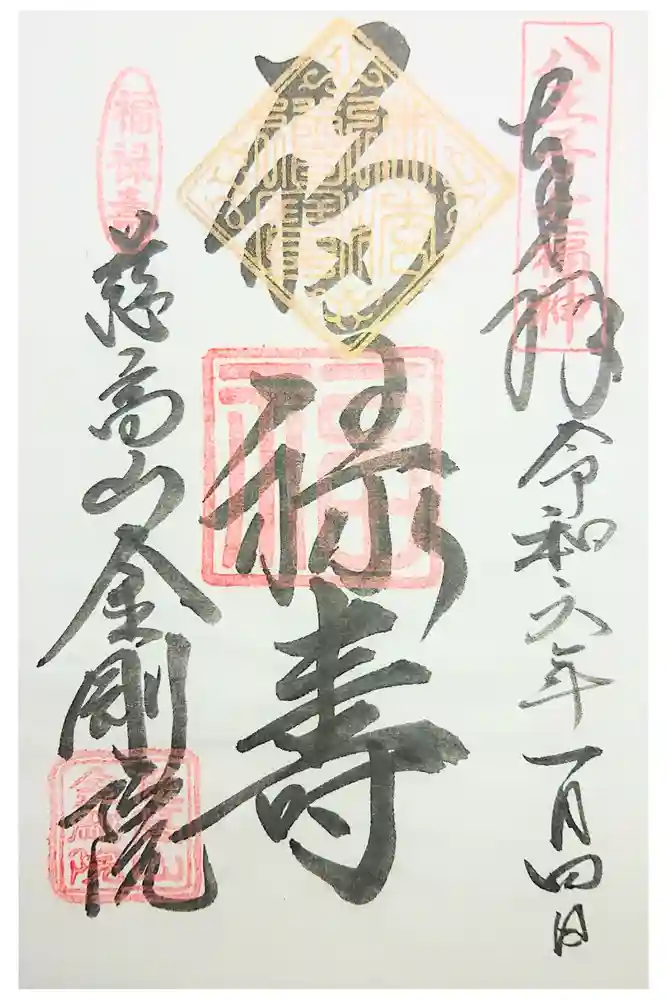 八王子七福神
奉拝
令和六年一月四日
福禄寿
福禄寿
慈高山金剛院
金剛院